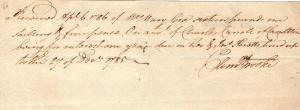 Received Apl. 6. 1786 of Mrs. Mary Cox sixteen pounds one
Shilling & four pence. On acc.t of Charles Carroll of Carrollton
being for interest one year due on her & Bond
to the 27 of Decr. 1785